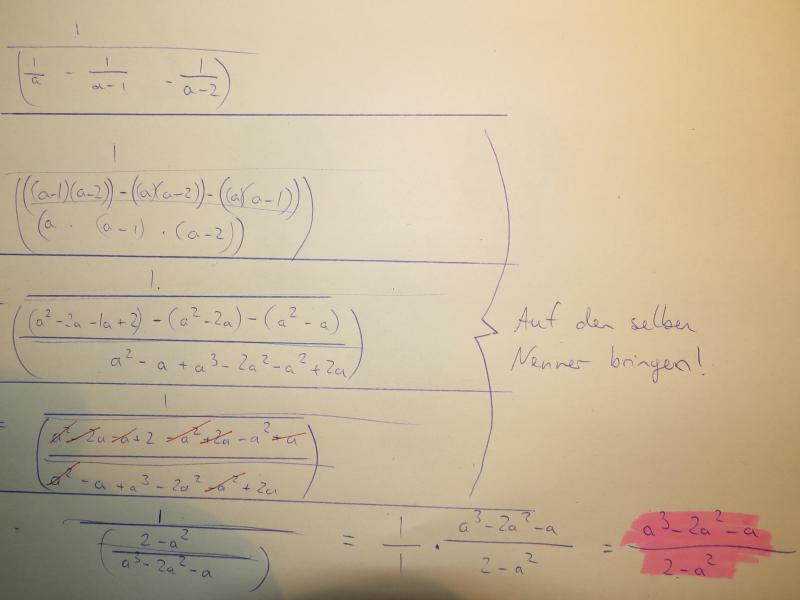 1
(1/a - 1/(a-1) - 1/(a-2))
1
(((a-1)(a-2)) - (a)(a-2)) - (a)(a-1))
(a · (a-1) · (a-2))
1.
(a² - 2a - 1a + 2) - (a² - 2a) - (a² - a)
a² - a + a³ - 2a² - a² + 2a
Auf den selben
Nenner bringen!
= 1
a² - 2a - a + 2 - a² + 2a - a² + a
a² - a + a³ - 2a² - a² + 2a
1 / ((2 - a²)/(a³ - 2a² - a)) = 1/1 · (a³ - 2a² - a)/(2 - a²) = (a³ - 2a² - a)/(2 - a²)